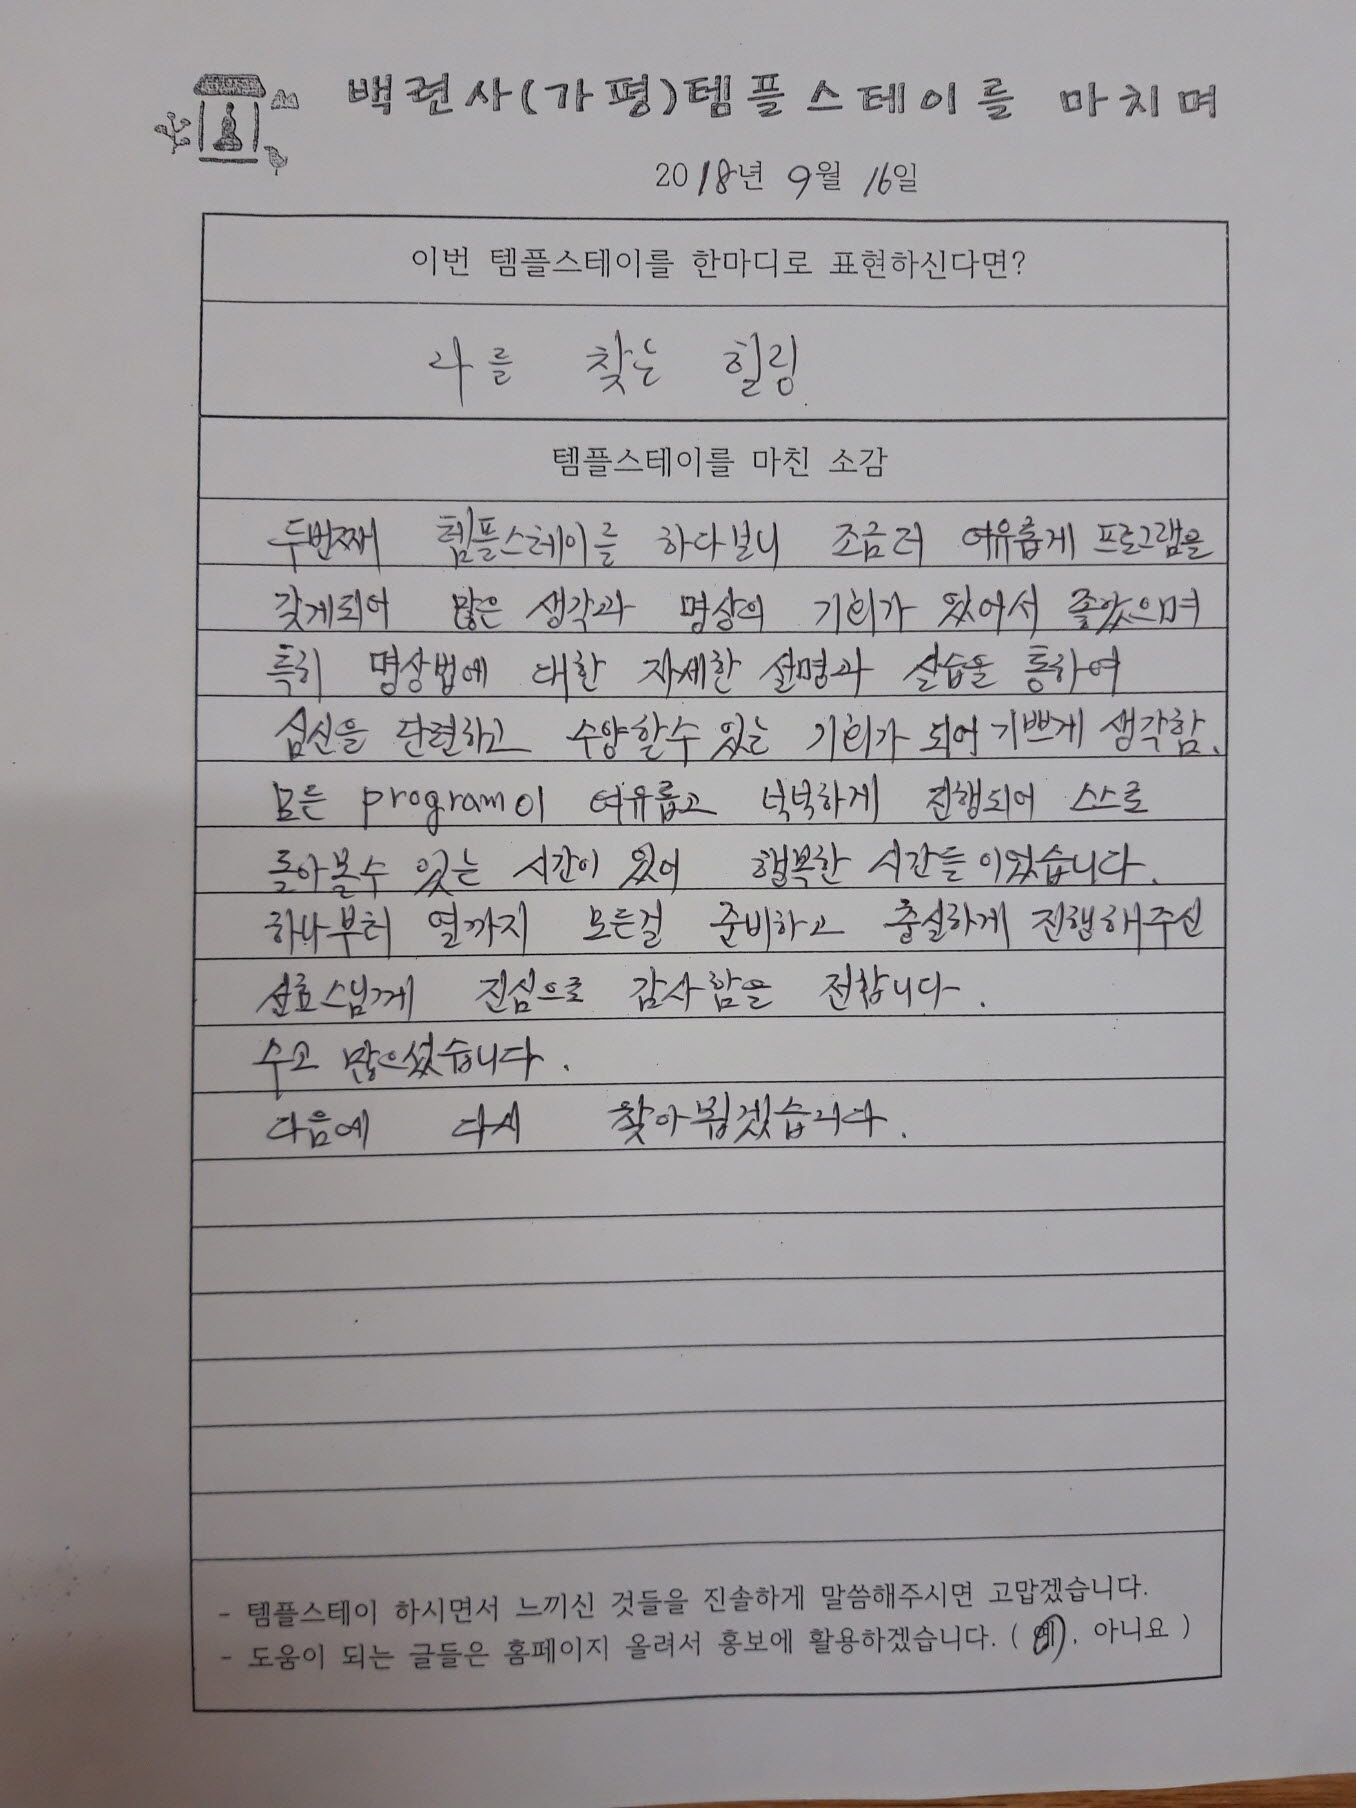 백련사(가평)템플스테이를 마치며
2018년 9월 16일
이번 템플스테이를 한마디로 표현하신다면?
나를 찾는 힐링
템플스테이를 마친 소감
두번째 템플스테이를 하다보니 조금더 여유롭게 프로그램을
갖게되어 많은 생각과 명상의 기회가 있어서 좋았으며
특히 명상법에 대한 자세한 설명과 실습을 통하여
심신을 단련하고 수양할수 있는 기회가 되어 기쁘게 생각함.
모든 program이 여유롭고 넉넉하게 진행되어 스스로
돌아볼수 있는 시간이 있어 행복한 시간들이었습니다.
하나부터 열까지 모든걸 준비하고 충실하게 진행해주신
선효스님께 진심으로 감사함을 전합니다.
수고 많으셨습니다.
다음에 다시 찾아뵙겠습니다.
- 템플스테이 하시면서 느끼신 것들을 진솔하게 말씀해주시면 고맙겠습니다.
- 도움이 되는 글들은 홈페이지 올려서 홍보에 활용하겠습니다. ( 예, 아니요 )